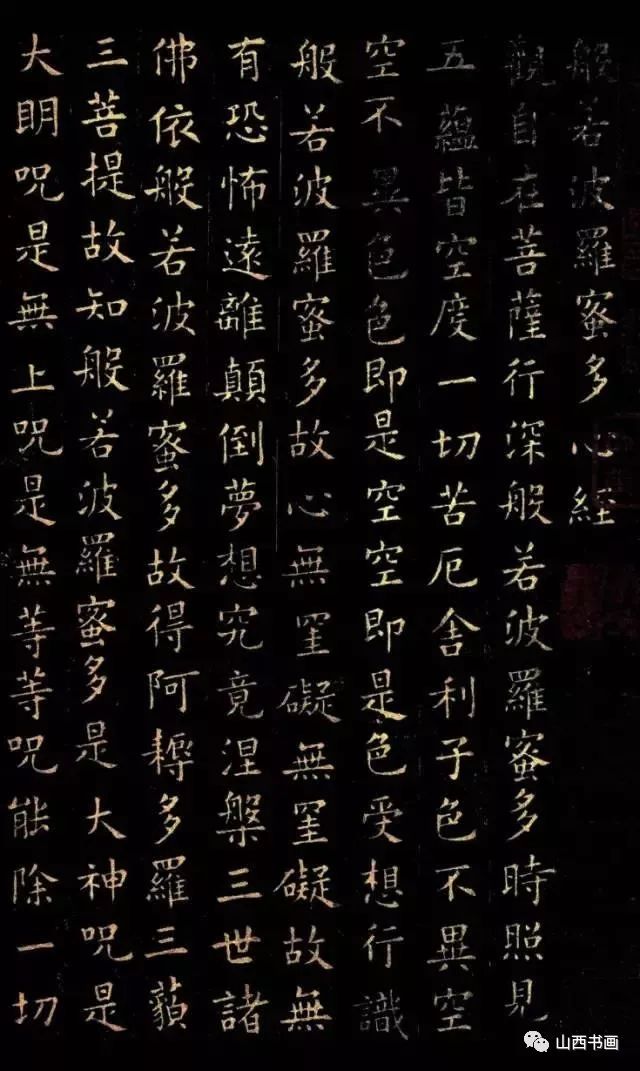 般若波羅蜜多心經
觀自在菩薩行深般若波羅蜜多時照見
五蘊皆空度一切苦厄舍利子色不異空
空不異色色即是空空即是色受想行識
般若波羅蜜多故心無罣礙無罣礙故無
有恐怖遠離顛倒夢想究竟涅槃三世諸
佛依般若波羅蜜多故得阿耨多羅三藐
三菩提故知般若波羅蜜多是大神呪是
大明呪是無上呪是無等等呪能除一切
山西书画